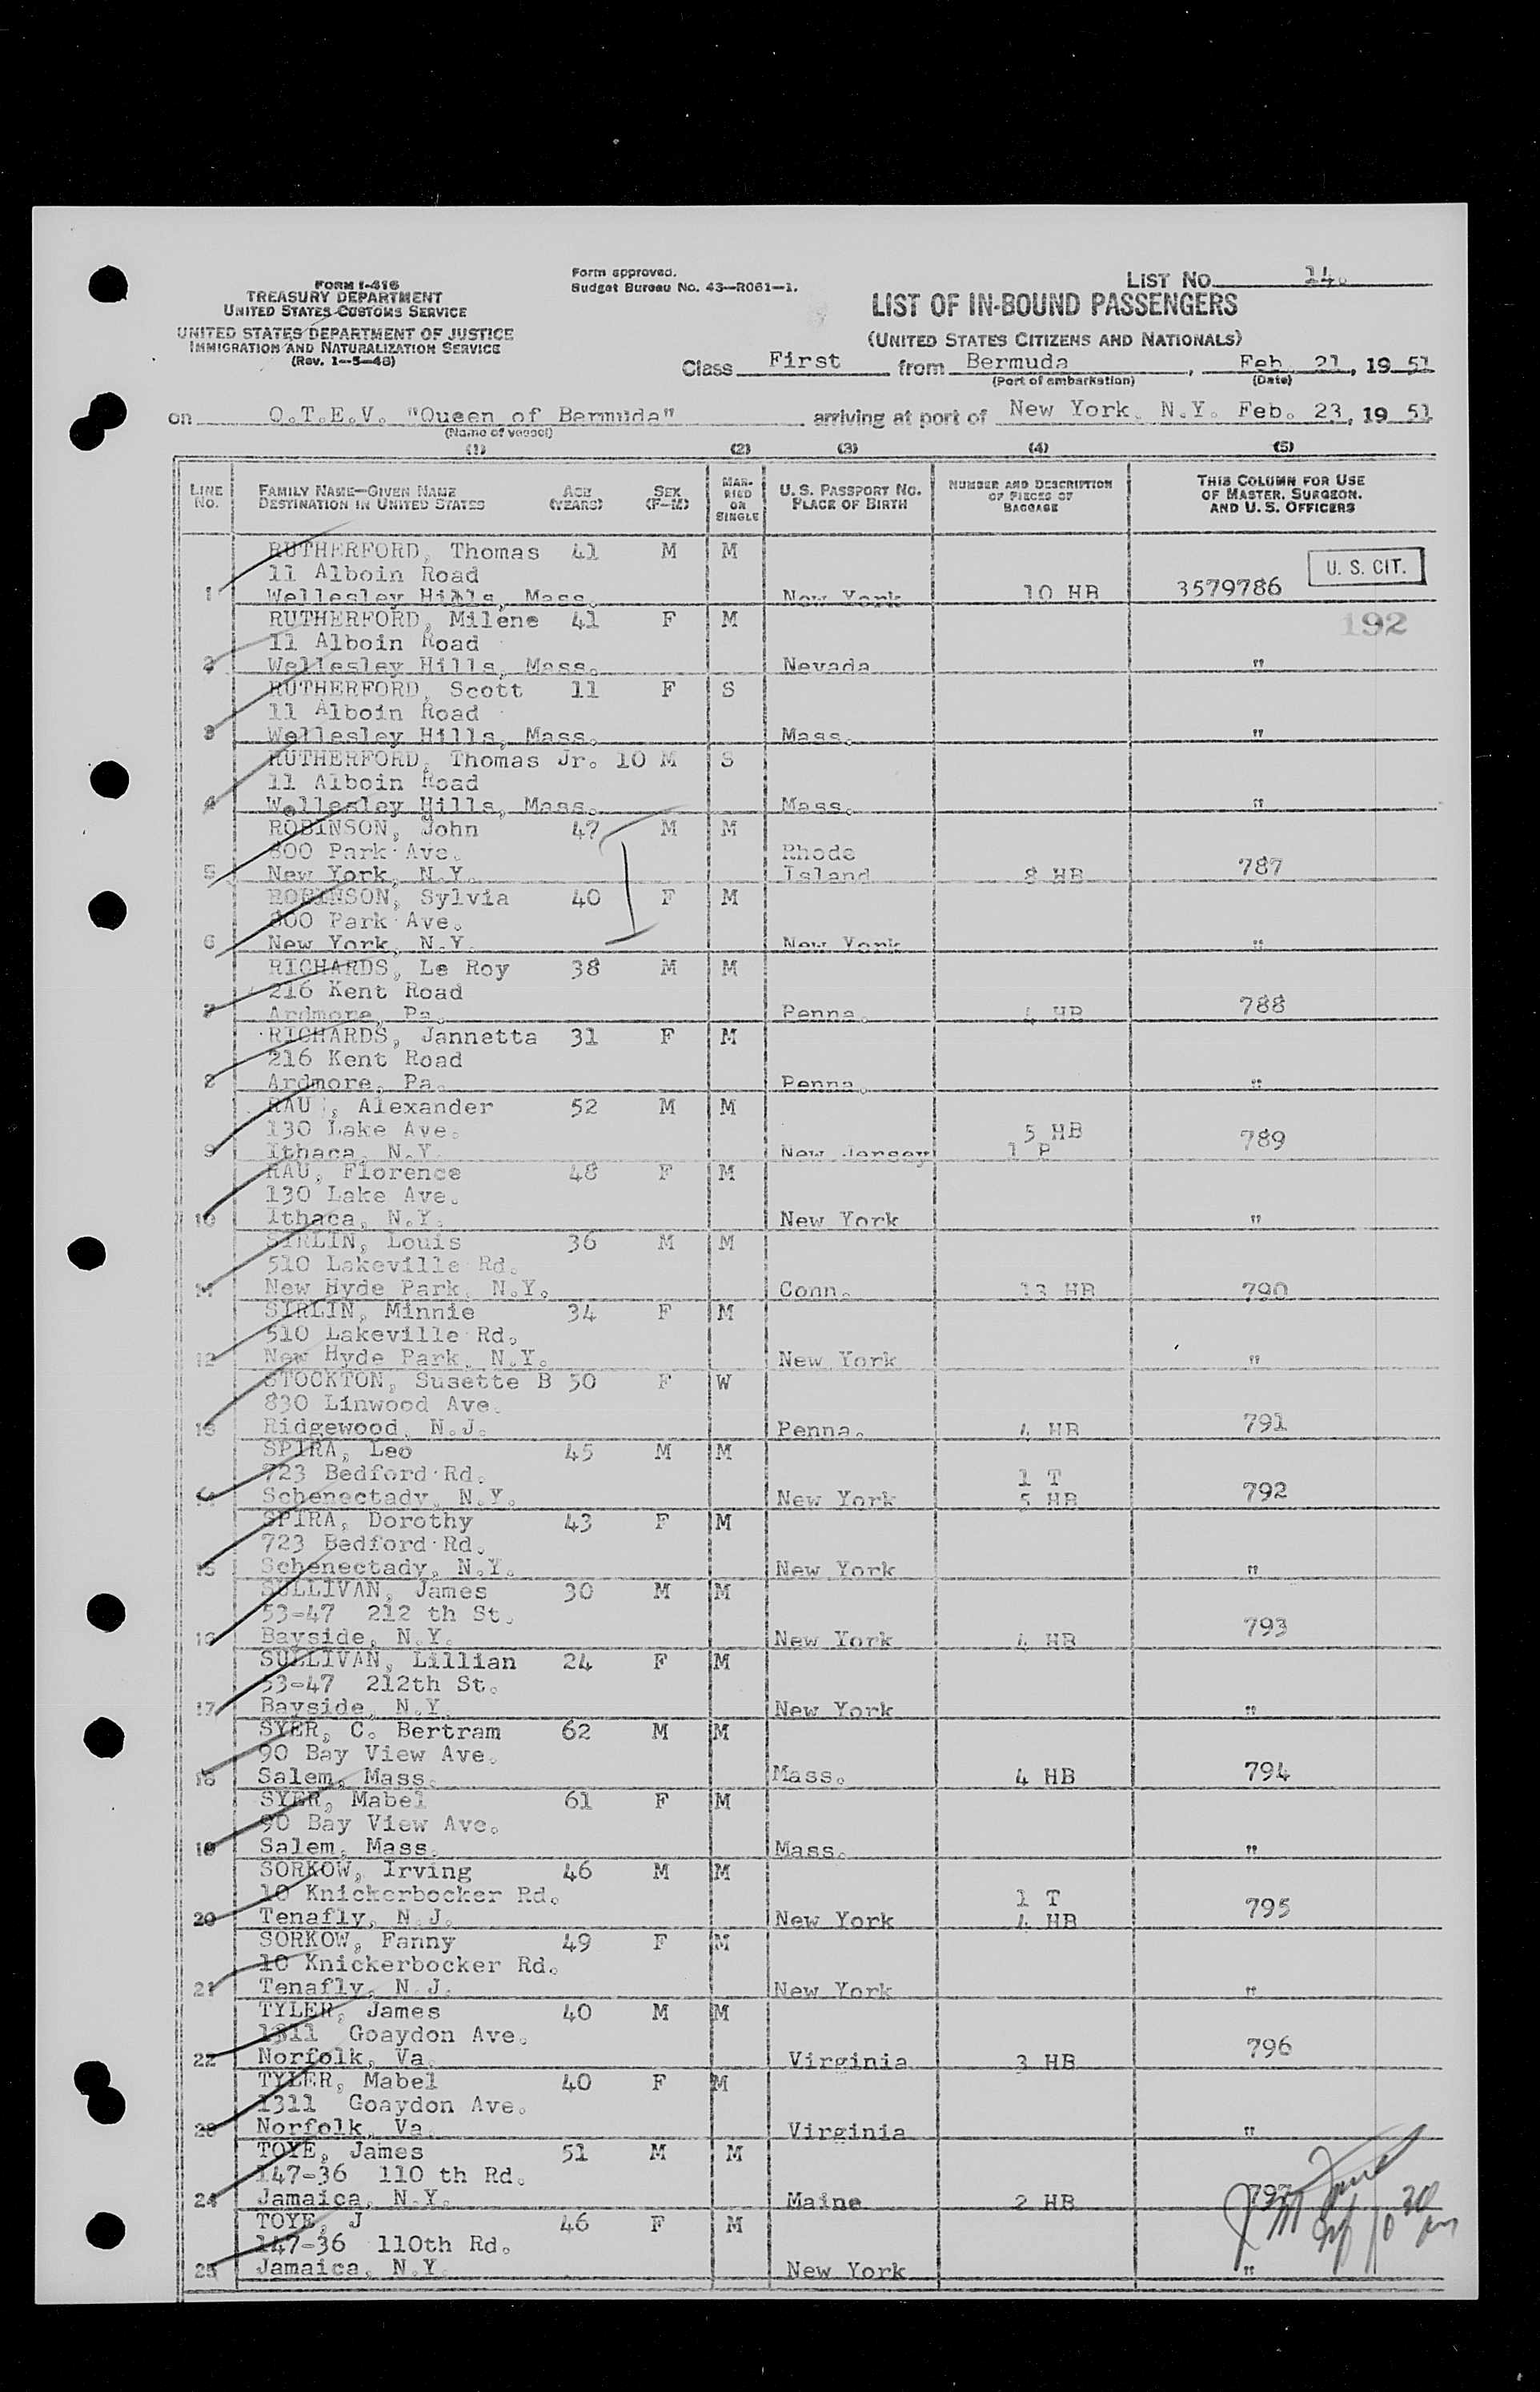 FORM I-416
TREASURY DEPARTMENT
UNITED STATES CUSTOMS SERVICE
UNITED STATES DEPARTMENT OF JUSTICE
IMMIGRATION AND NATURALIZATION SERVICE
(Rev. 1-5-48)
Form approved.
Budget Bureau No. 43-R061-1.
LIST NO. 14.
LIST OF IN-BOUND PASSENGERS
(UNITED STATES CITIZENS AND NATIONALS)
Class First from Bermuda, Feb. 21, 19 51
(Port of embarkation) (Date)
on Q.T.E.V. "Queen of Bermuda" arriving at port of New York, N.Y. Feb. 23, 19 51
(Name of vessel)
(1) (2) (3) (4) (5)
LINE NO. FAMILY NAME—GIVEN NAME DESTINATION IN UNITED STATES AGE (YEARS) SEX (F-M) MARRIED OR SINGLE U. S. PASSPORT NO. PLACE OF BIRTH NUMBER AND DESCRIPTION OF PIECES OF BAGGAGE THIS COLUMN FOR USE OF MASTER, SURGEON, AND U. S. OFFICERS
RUTHERFORD, Thomas 41 M M
11 Alboin Road U. S. CIT.
1 Wellesley Hills, Mass. New York 10 HB 3579786
RUTHERFORD, Milene 41 F M 192
11 Alboin Road
2 Wellesley Hills, Mass. Nevada "
RUTHERFORD, Scott 11 F S
11 Alboin Road
3 Wellesley Hills, Mass. Mass. "
RUTHERFORD, Thomas Jr. 10 M S
11 Alboin Road
4 Wellesley Hills, Mass. Mass. "
ROBINSON, John 47 M M
800 Park Ave. Rhode
5 New York, N.Y. Island 8 HB 787
ROBINSON, Sylvia 40 F M
800 Park Ave.
6 New York, N.Y. New York "
RICHARDS, Le Roy 38 M M
216 Kent Road
7 Ardmore, Pa. Penna. 4 HB 788
RICHARDS, Jannetta 31 F M
216 Kent Road
8 Ardmore, Pa. Penna. "
RAU, Alexander 52 M M
130 Lake Ave. 5 HB 789
9 Ithaca, N.Y. New Jersey 1 P
RAU, Florence 48 F M
130 Lake Ave.
10 Ithaca, N.Y. New York "
SIRLIN, Louis 36 M M
510 Lakeville Rd.
11 New Hyde Park, N.Y. Conn. 13 HB 790
SIRLIN, Minnie 34 F M
510 Lakeville Rd.
12 New Hyde Park, N.Y. New York "
STOCKTON, Susette B 50 F W
830 Linwood Ave.
13 Ridgewood, N.J. Penna. 4 HB 791
SPIRA, Leo 45 M M
723 Bedford Rd. 1 T
14 Schenectady, N.Y. New York 5 HB 792
SPIRA, Dorothy 43 F M
723 Bedford Rd.
15 Schenectady, N.Y. New York "
SULLIVAN, James 30 M M
53-47 212 th St.
16 Bayside, N.Y. New York 4 HB 793
SULLIVAN, Lillian 24 F M
53-47 212th St.
17 Bayside, N.Y. New York "
SYER, C. Bertram 62 M M
90 Bay View Ave.
18 Salem, Mass. Mass. 4 HB 794
SYER, Mabel 61 F M
90 Bay View Ave.
19 Salem, Mass. Mass. "
SORKOW, Irving 46 M M
10 Knickerbocker Rd. 1 T
20 Tenafly, N.J. New York 4 HB 795
SORKOW, Fanny 49 F M
10 Knickerbocker Rd.
21 Tenafly, N.J. New York "
TYLER, James 40 M M
1311 Goaydon Ave.
22 Norfolk, Va. Virginia 3 HB 796
TYLER, Mabel 40 F M
1311 Goaydon Ave.
23 Norfolk, Va. Virginia "
TOYE, James 51 M M
147-36 110 th Rd.
24 Jamaica, N.Y. Maine 2 HB 797
TOYE, J 46 F M
147-36 110th Rd.
25 Jamaica, N.Y. New York "